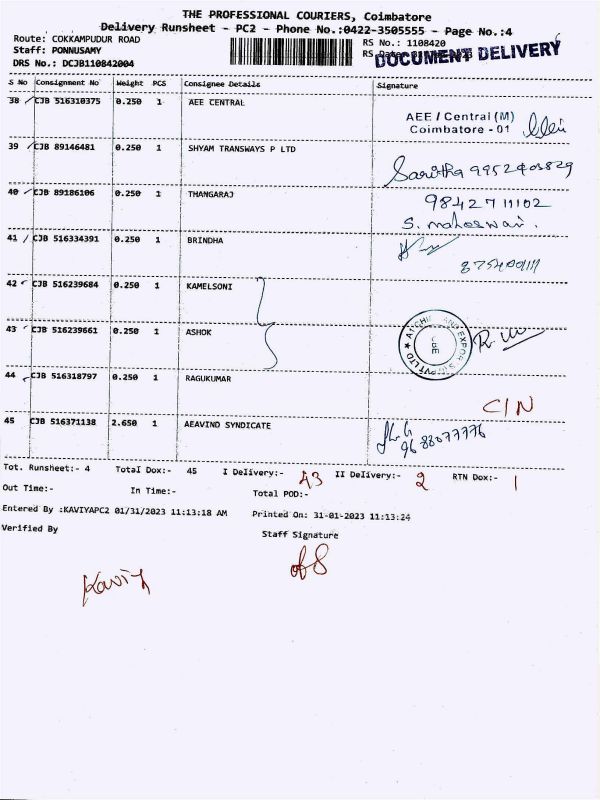 THE PROFESSIONAL COURIERS, Coimbatore
Delivery Runsheet - PC2 - Phone No.:0422-3505555 - Page No.:4
Route: COKKAMPUDUR ROAD
RS No.: 1108420
Staff: PONNUSAMY
DOCUMENT DELIVERY
DRS No.: DCJB110842004
S No Consignment No Weight PCS Consignee Details Signature
38 CJB 516310375 0.250 1 AEE CENTRAL
AEE / Central (M)
Coimbatore - 01
39 CJB 89146481 0.250 1 SHYAM TRANSWAYS P LTD
Saritha 9952403829
40 CJB 89186106 0.250 1 THANGARAJ
98427 11102
S. maheswari.
41 CJB 516334391 0.250 1 BRINDHA
42 CJB 516239684 0.250 1 KAMELSONI
43 CJB 516239661 0.250 1 ASHOK
44 CJB 516318797 0.250 1 RAGUKUMAR
C/N
45 CJB 516371138 2.650 1 AEAVIND SYNDICATE
96 88077776
Tot. Runsheet:- 4 Total Dox:- 45 I Delivery:- 43 II Delivery:- 2 RTN Dox:- 1
Out Time:- In Time:- Total POD:-
Entered By :KAVIYAPC2 01/31/2023 11:13:18 AM Printed On: 31-01-2023 11:13:24
Verified By Staff Signature
Kaviya